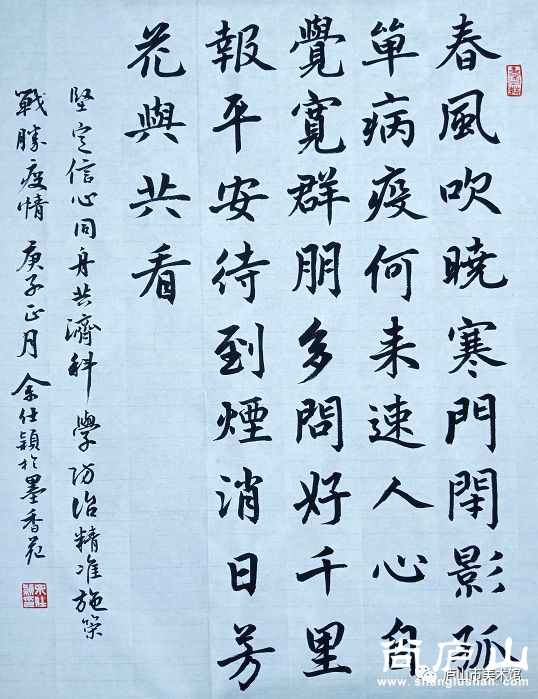 春風吹曉寒門閉影孤
單病疫何来速人心自
覺寬群朋多問好千里
報平安待到煙消日芳
花與共看
堅定信心同舟共濟科學防治精准施策
戰勝疫情 庚子正月 余仕穎於墨香苑
尚庐山
www.shanglushan.com
庐山市美术馆